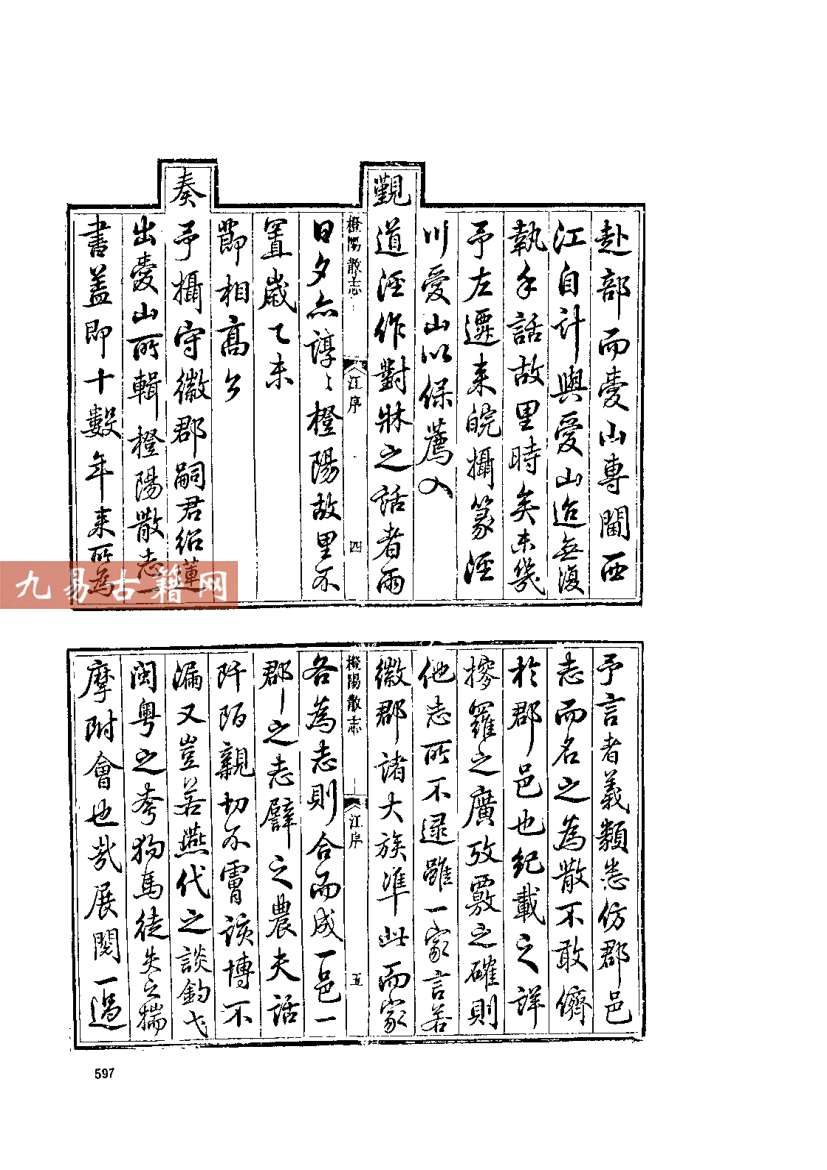 赴部而愛山專閫西
江自計與愛山迨無復
執手話故里時矣未幾
予左遷来皖攝篆涇
川愛山以保薦入
覲道涇作對牀之話者兩
橙陽散志
江序
四
日夕亦諄〻橙陽故里不
置歲乙未
節相高公
奏予攝守徽郡嗣君紹蓮
出愛山所輯橙陽散志一
書盖即十數年来所為
予言者義類悉仿郡邑
志而名之為散不敢儕
於郡邑也紀載之詳
搜羅之廣攷覈之確則
他志所不逮雖一家言若
徽郡諸大族準此而家
橙陽散志
江序
五
各為志則合而成一邑一
郡之志譬之農夫話
阡陌親切不啻該博不
漏又豈若燕代之談釣弋
閩粤之夸狗馬徒失之揣
摩附會也哉展閱一過
597
九易古籍网